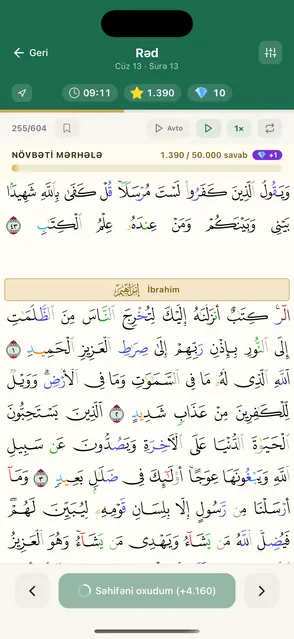 Geri
Rəd
Cüz 13 · Surə 13
09:11
1.390
10
255/604
Avto
1×
NÖVBƏTİ MƏRHƏLƏ
1.390 / 50.000 savab
+1
وَيَقُولُ ٱلَّذِينَ كَفَرُوا۟ لَسْتَ مُرْسَلًا ۚ قُلْ كَفَىٰ بِٱللَّهِ شَهِيدًۢا
بَيْنِى وَبَيْنَكُمْ وَمَنْ عِندَهُۥ عِلْمُ ٱلْكِتَـٰبِ ٤٣
إبراهيم İbrahim
الٓر ۚ كِتَـٰبٌ أَنزَلْنَـٰهُ إِلَيْكَ لِتُخْرِجَ ٱلنَّاسَ مِنَ ٱلظُّلُمَـٰتِ
إِلَى ٱلنُّورِ بِإِذْنِ رَبِّهِمْ إِلَىٰ صِرَٰطِ ٱلْعَزِيزِ ٱلْحَمِيدِ ١
ٱللَّهِ ٱلَّذِى لَهُۥ مَا فِى ٱلسَّمَـٰوَٰتِ وَمَا فِى ٱلْأَرْضِ ۗ وَوَيْلٌ
لِّلْكَـٰفِرِينَ مِنْ عَذَابٍ شَدِيدٍ ٢ ٱلَّذِينَ يَسْتَحِبُّونَ
ٱلْحَيَوٰةَ ٱلدُّنْيَا عَلَى ٱلْـَٔاخِرَةِ وَيَصُدُّونَ عَن سَبِيلِ
ٱللَّهِ وَيَبْغُونَهَا عِوَجًا ۚ أُو۟لَـٰٓئِكَ فِى ضَلَـٰلٍۭ بَعِيدٍ ٣ وَمَآ
أَرْسَلْنَا مِن رَّسُولٍ إِلَّا بِلِسَانِ قَوْمِهِۦ لِيُبَيِّنَ لَهُمْ ۖ
فَيُضِلُّ ٱللَّهُ مَن يَشَآءُ وَيَهْدِى مَن يَشَآءُ ۚ وَهُوَ ٱلْعَزِيزُ
Səhifəni oxudum (+4.160)